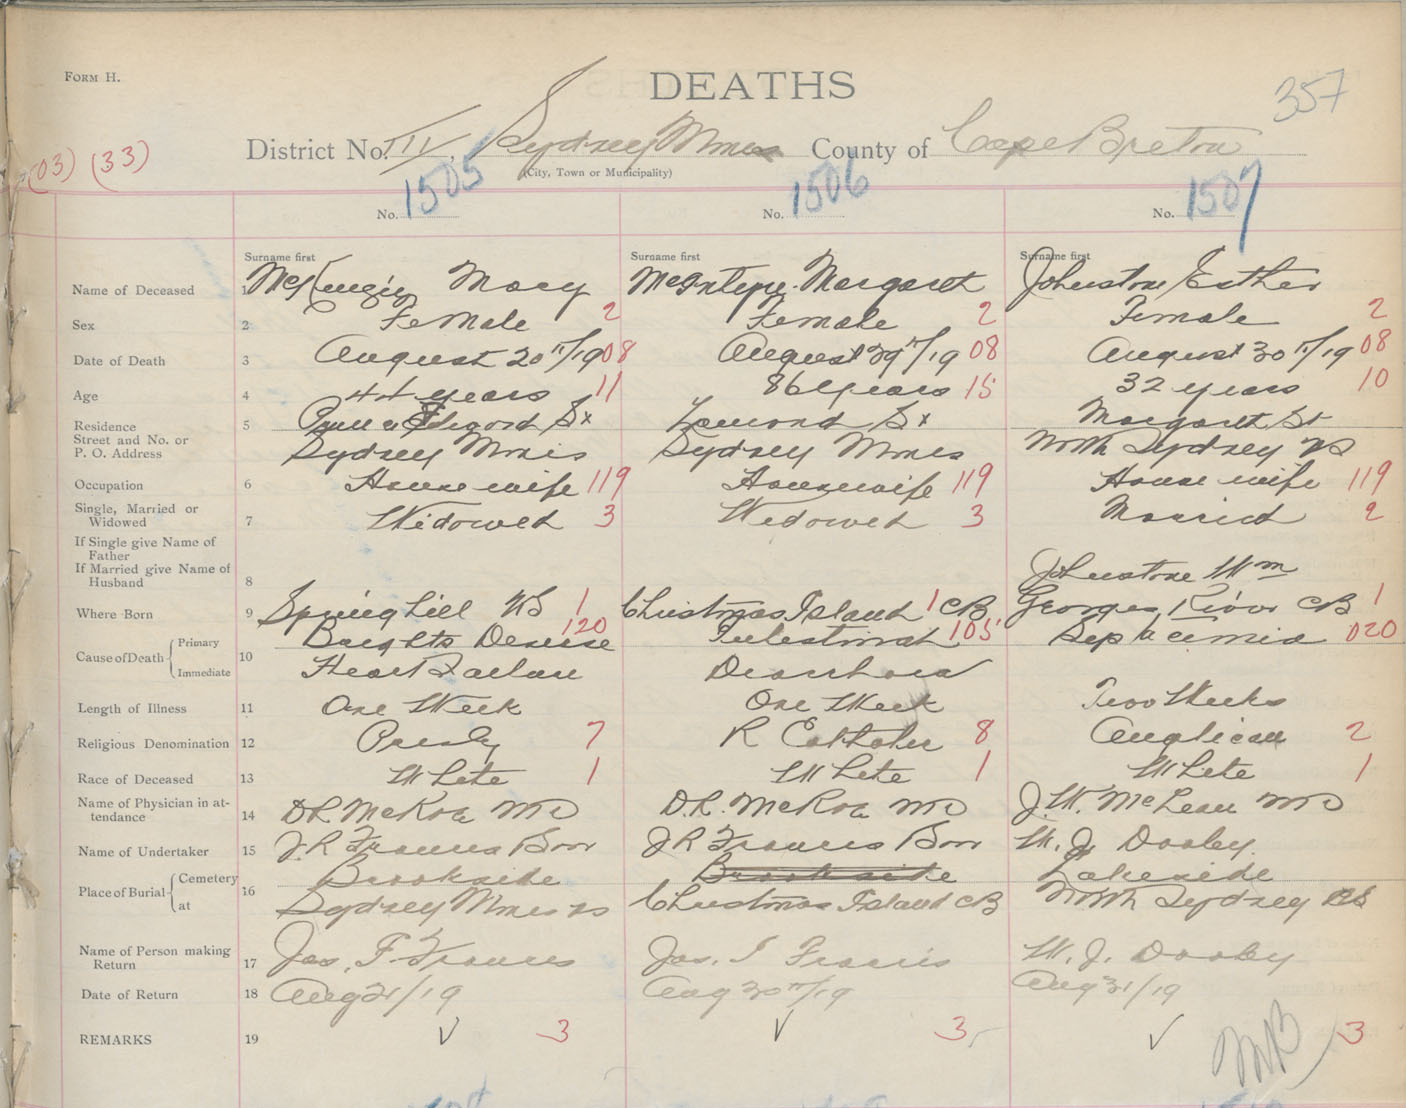 FORM H.
DEATHS
357
District No. III, Sydney Mines County of Cape Breton
(City, Town or Municipality)
(03) (33)
No. 1505 No. 1506 No. 1507
Surname first Surname first Surname first
Name of Deceased 1 McKenzie Mary McIntyre Margaret Johnstone Esther
Sex 2 Female 2 Female 2 Female 2
Date of Death 3 August 20th/19 08 August 29th/19 08 August 30th/19 08
Age 4 44 years 11 86 years 15 32 years 10
Residence 5 St St Margaret St
Street and No. or
P. O. Address Sydney Mines Sydney Mines North Sydney NS
Occupation 6 Housewife 119 Housewife 119 Housewife 119
Single, Married or
Widowed 7 Widowed 3 Widowed 3 Married 2
If Single give Name of
Father
If Married give Name of
Husband 8 Johnstone Wm
Where Born 9 Springhill NS 1 Christmas Island 1 CB Georges River CB 1
Cause of Death Primary 10 Brights Desease 120 Intestinal 105 Septicemia 020
Immediate Heart Failure Diarrhoea
Length of Illness 11 One Week One Week Two Weeks
Religious Denomination 12 Presby 7 R Catholic 8 Anglican 2
Race of Deceased 13 White 1 White 1 White 1
Name of Physician in at-
tendance 14 DR McRae MD D.R. McRae MD J.W. McLean MD
Name of Undertaker 15 J.R Francis Bror J R Francis Bror W. J. Dooley
Place of Burial Cemetery 16 Brookside Brookside Lakeside
at Sydney Mines NS Christmas Island CB North Sydney NS
Name of Person making
Return 17 Jas. F Francis Jas. J Francis W. J. Dooley
Date of Return 18 Aug 21/19 Aug 30th/19 Aug 31/19
REMARKS 19 ✓ 3 ✓ 3 ✓ 3